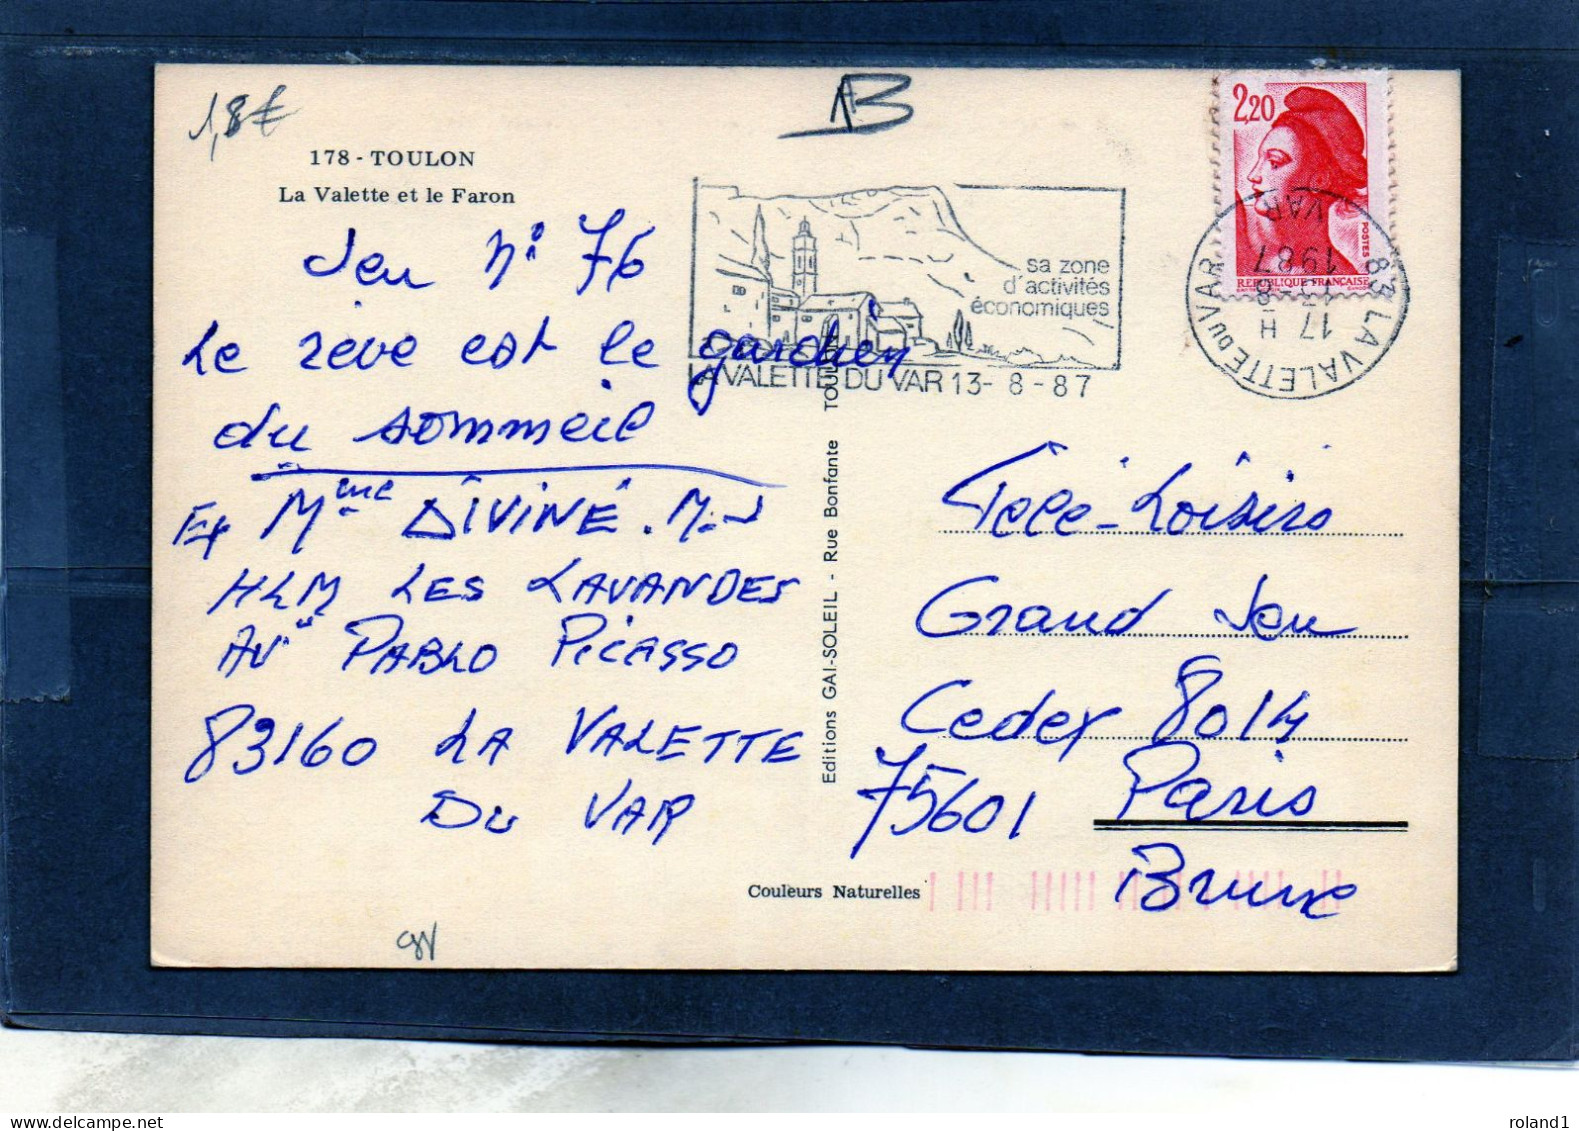 1,8€
178 - TOULON
La Valette et le Faron
Jeu N° 76
Le rêve est le gardien
du sommeil
Mme DIVINÉ . M-J
HLM LES LAVANDES
AV PABLO PICASSO
83160 LA VALETTE
DU VAR
Couleurs Naturelles
Editions GAI-SOLEIL - Rue Bonfante TOULON
sa zone
d'activités
économiques
LA VALETTE DU VAR 13- 8 - 87
2,20
POSTES
REPUBLIQUE FRANÇAISE
83 LA VALETTE DU VAR
17 H
13-8
1987
VAR
Télé-Loisirs
Grand Jeu
Cedex 8014
75601 Paris
Brune
delcampe.net
roland1